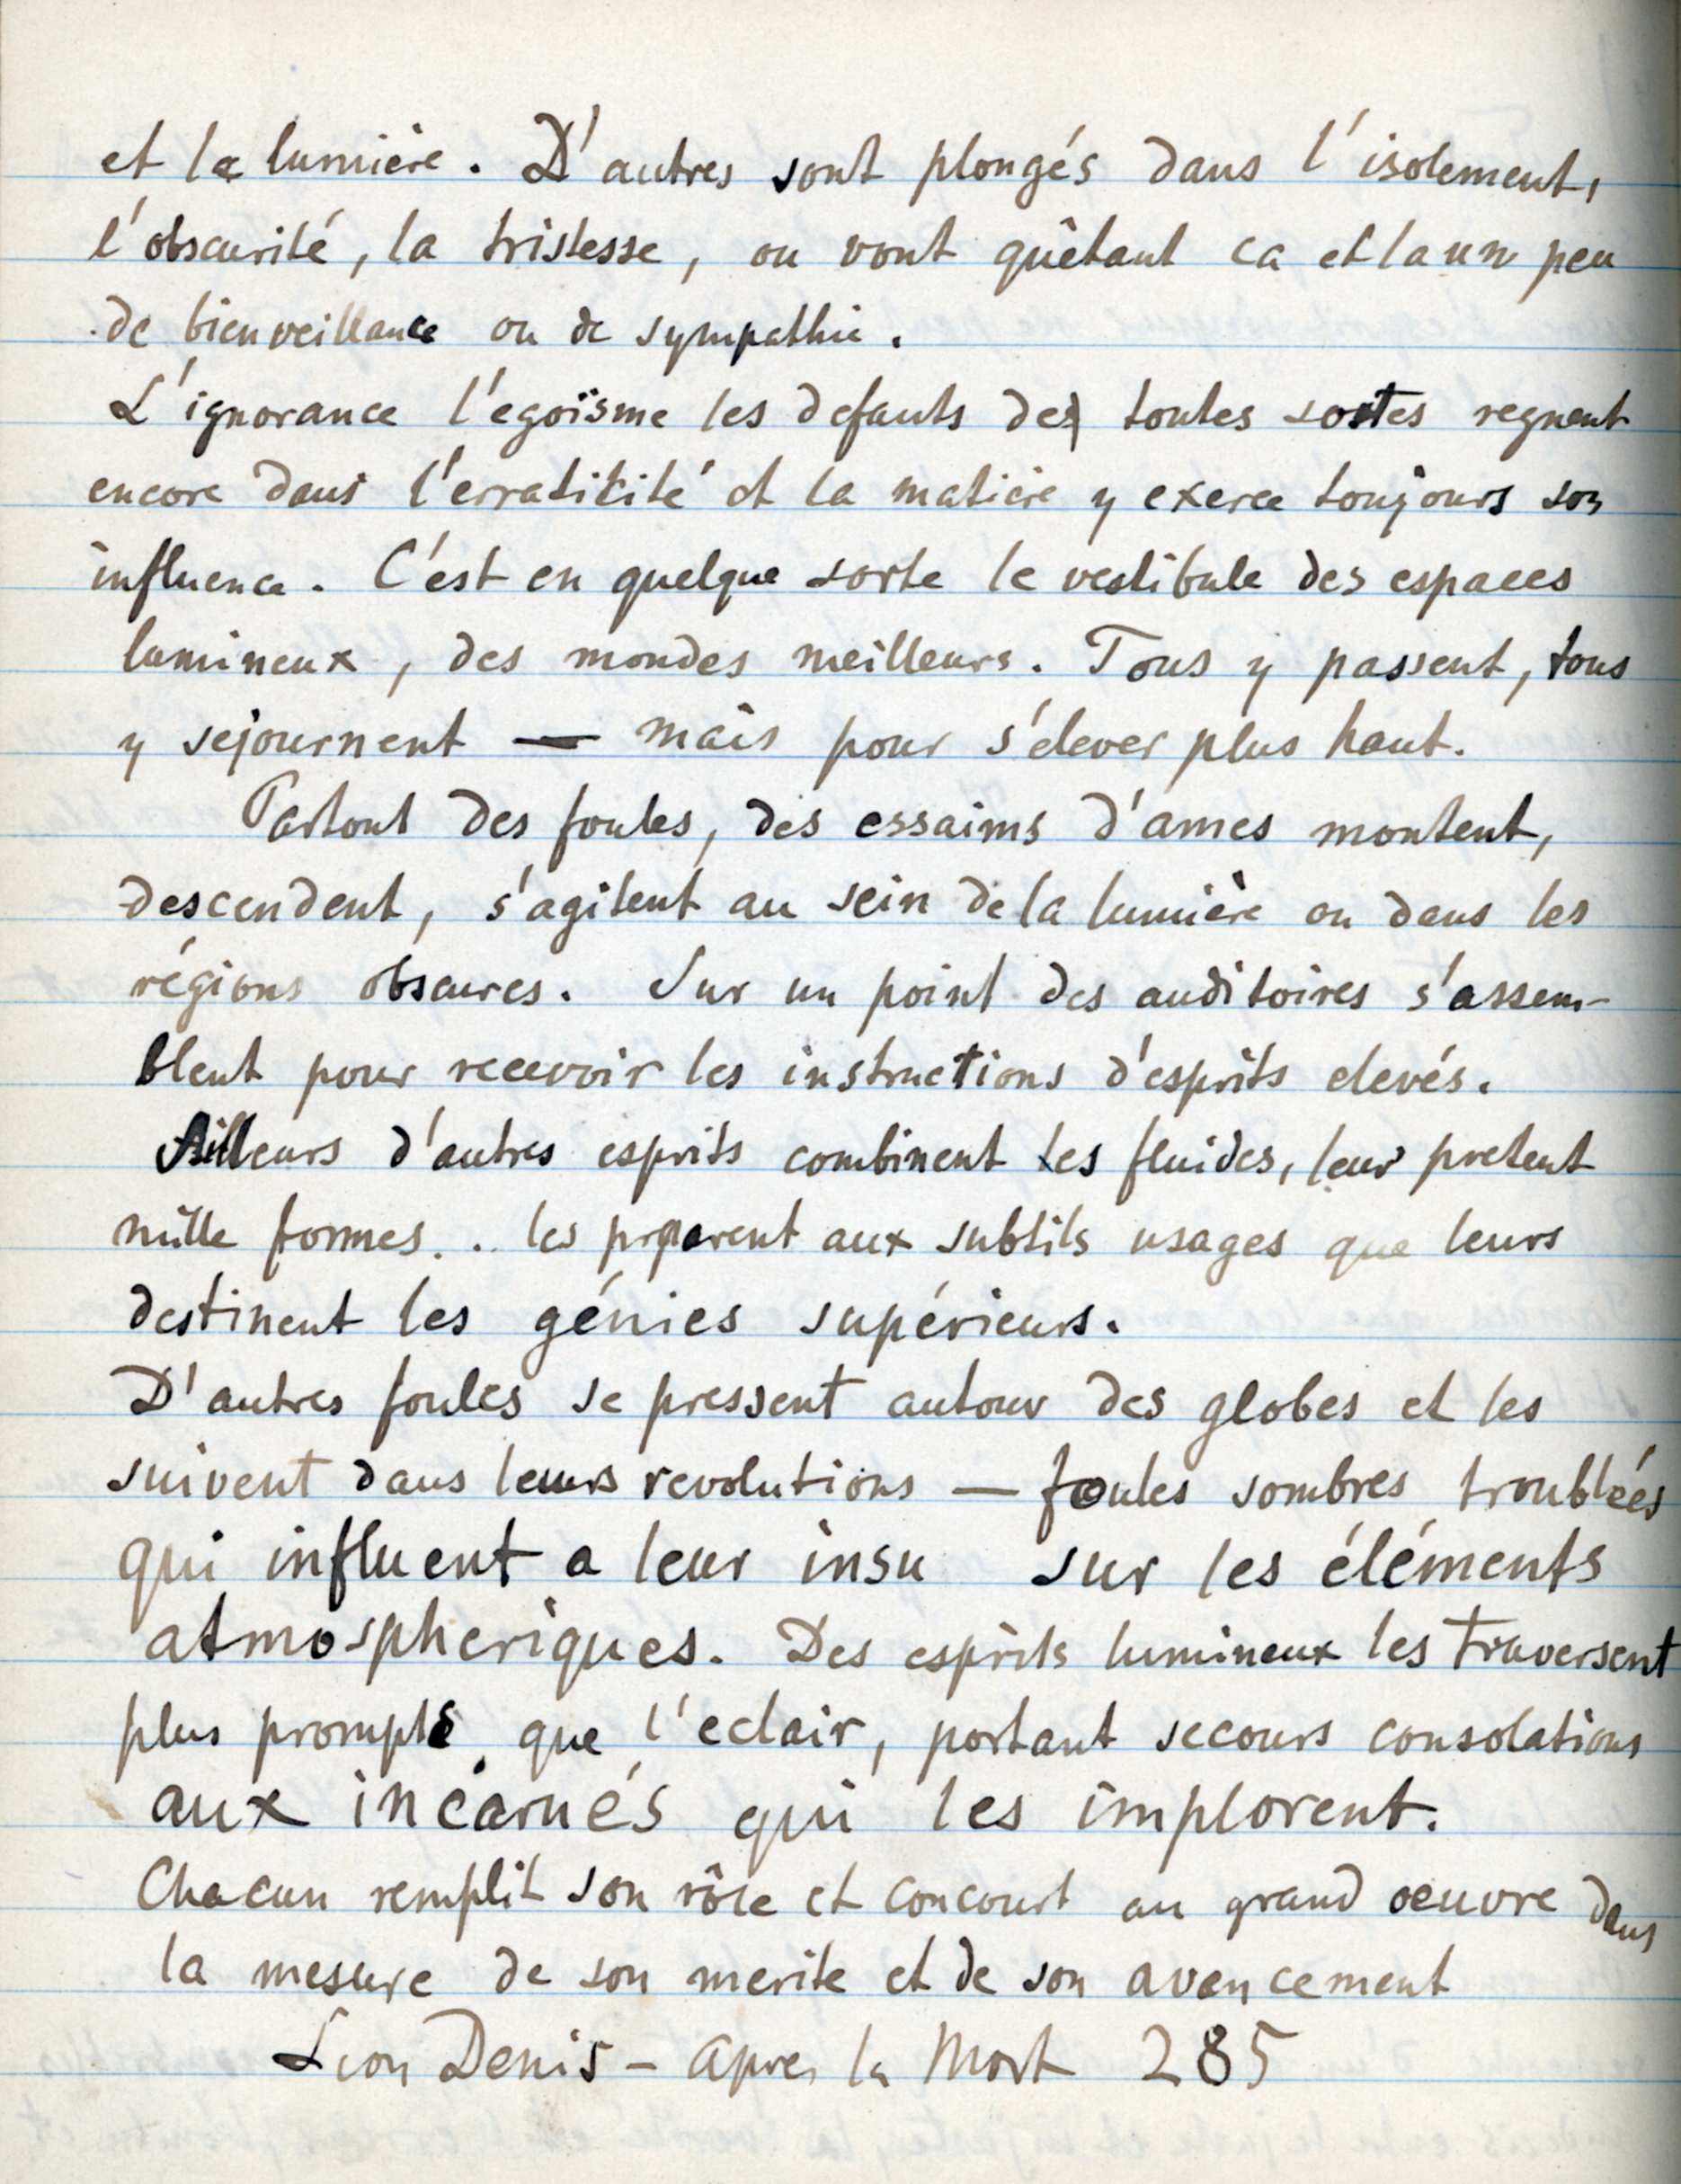 et la lumière. D'autres sont plongés dans l'isolement,
l'obscurité, la tristesse, ou vont quêtant ca et la un peu
de bienveillance ou de sympathie.
L'ignorance l'egoïsme les defauts des toutes sortes regnent
encore dans l'erraticité et la matière y exerce toujours son
influence. C'est en quelque sorte le vestibule des espaces
lumineux, des mondes meilleurs. Tous y passent, tous
y sejournent — mais pour s'élever plus haut.
Partout des foules, des essaims d'ames montent,
descendent, s'agitent au sein de la lumière ou dans les
régions obscures. Sur un point des auditoires s'assem-
blent pour recevoir les instructions d'esprits elevés.
Ailleurs d'autres esprits combinent les fluides, leur pretent
mille formes. . les preparent aux subtils usages que leurs
destinent les génies supérieurs.
D'autres foules se pressent autour des globes et les
suivent dans leurs revolutions — foules sombres troublées
qui influent a leur insu sur les éléments
atmospheriques. Des esprits lumineux les traversent
plus prompts que l'eclair, portant secours consolations
aux incarnés qui les implorent.
Chacun remplit son rôle et concourt au grand oeuvre dans
la mesure de son merite et de son avancement
Léon Denis - Apres la Mort 285